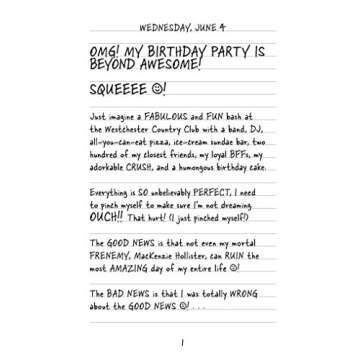 WEDNESDAY, JUNE 4
OMG! MY BIRTHDAY PARTY IS
BEYOND AWESOME!
SQUEEEE ☺!
Just imagine a FABULOUS and FUN bash at
the Westchester Country Club with a band, DJ,
all-you-can-eat pizza, ice-cream sundae bar, two
hundred of my closest friends, my loyal BFFs, my
adorkable CRUSH, and a humongous birthday cake.
Everything is SO unbelievably PERFECT, I need
to pinch myself to make sure I'm not dreaming.
OUCH!! That hurt! (I just pinched myself!)
The GOOD NEWS is that not even my mortal
FRENEMY, MacKenzie Hollister, can RUIN the
most AMAZING day of my entire life ☺!
The BAD NEWS is that I was totally WRONG
about the GOOD NEWS ☹! . . .
1